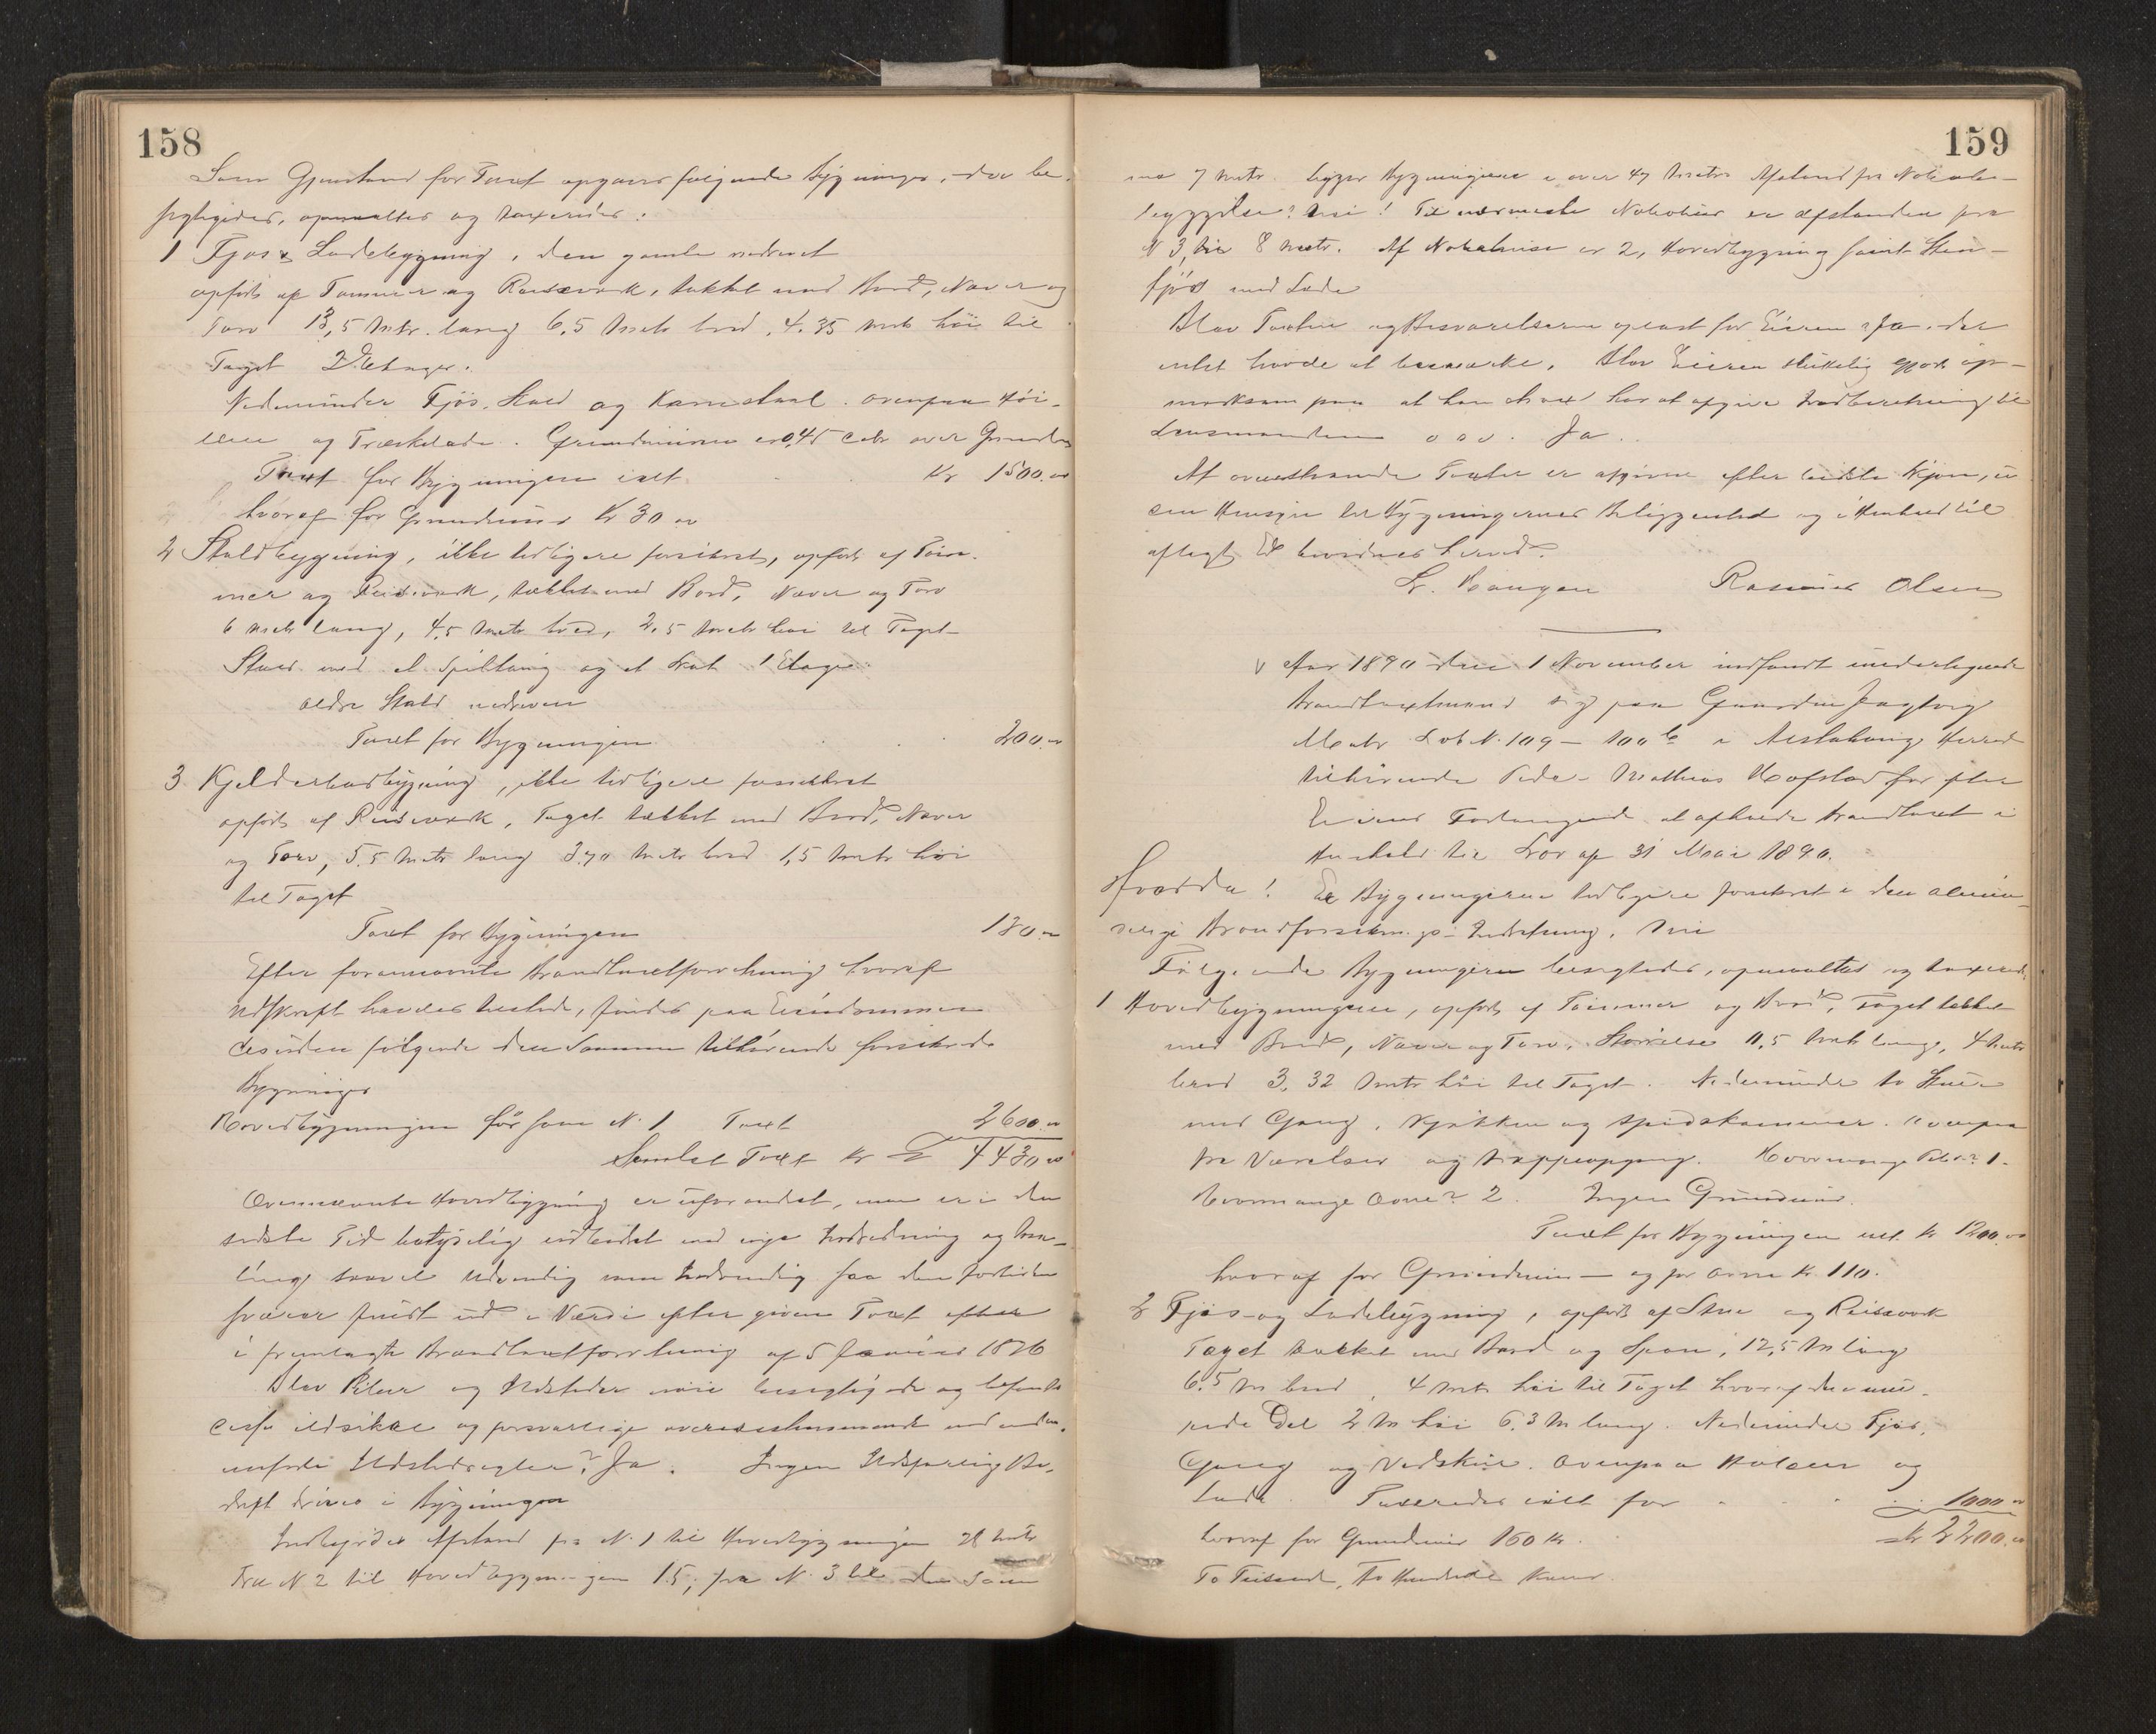 158
Som Gjenstand for Taxt opgaves følgende Bygninger, der be-
sigtigedes, opmaaltes og taxeredes:
1 Fjøs & Ladebygning, den gamle nedrevet
opført af Tømmer og Reisværk, tækket med Bord, Næver og
Torv 13,5 Mtr. lang 6,5 Metr bred, 4.35 Metr høi til
Taget 2 Etager.
Nedenunder Fjøs, Stald og ovenpaa Høi-
og Træskelade. Grundmuren er 0,45 over Grunden
Taxt for Bygningen ialt Kr 1500.00
hvoraf for Grundmur Kr 30 00
2 Staldbygning, ikke tidligere forsikret, opført af Tøm-
mer og Reisværk, tækket med Bord, Næver og Torv
6 Metr lang, 4.5 Metr bred, 2.5 Metr høi til Taget
Stald med et Spiltaug og et 1 Etage
ældre Stald nedreven
Taxt for Bygningen 200.00
3 bygning, ikke tidligere forsikret
opført af Reisværk, Taget tækket med Bord, Næver
og Torv, 5.5 Metr lang 3.70 Metr bred 1,5 Metr høi
til Taget
Taxt for Bygningen 130.00
Efter forannævnte Brandtaxtforretning hvoraf
Udskrift havdes tilstede, findes paa Eiendommen
desuden følgende den Samme tilhørende forsikrede
Bygninger
Hovedbygningen før som N. 1 Taxt 2600.00
Samlet Taxt Kr 4430 00
Ovennævnte Hovedbygning er uforandret, men er i den
sidste Tid betydelig udbedret med nye Indredning og Ma-
ling saavel udvendig som indvendig saa den fortiden
svarer fuldt ud i Værdi efter given Taxt efter
i fremlagte Brandtaxtforretning af 5 Januar 1876
Blev Piber og Ildsteder nøie besigtigede og befandtes
disse ildsikre og forsvarlige overensstemmende med
Ildstedregler? Ja. Ingen Ildsfarlig Be-
drift drives i Bygningen
Indbyrdes Afstand fra N. 1 til Hovedbygningen 28 Metr
Fra N 2 til Hovedbygningen 15, fra N. 3 til den Sam-
159
me 7 Metr ligger Bygningerne i over 47 Metrs Afstand fra Nabobe-
byggelse? Nei! Til nærmeste Nabohus er afstanden fra
N 3, til 8 Metr. Af Nabohuse er 2, Hovedbygning samt Sten-
fjøs med Lade
Blev Taxten og Besvarelserne oplæst for Eieren Ja. der
intet havde at bemærke. Blev Eieren gjort op-
mærksom paa at han strax har at afgive Indberetning til
Lensmanden o s v. Ja.
At ovenstaaende Taxter er afgivne efter bedste Skjøn, u-
den Hensyn til Bygningernes Beliggenhed og i Henhold til
aflagt Ed bevidnes herved.
L. Haugen Rasmus Olsen
Aar 1890 den 1 November indfandt undertegnede
Brandtaxtmænd sig paa Gaarden
Matr Løb N. 109 — 100 b i Herred
tilhørende Peder Mathias Hofstad for efter
Eierens Forlangende at afholde Brandtaxt i
Henhold til Lov af 31 Mai 1890.
Er Bygningerne tidligere forsikret i den almin-
delige Brandforsikrings-Indretning. Nei
Følgende Bygninger besigtedes, opmaaltes og taxeredes
1 Hovedbygningen, opført af Tømmer og Bord, Taget tækket
med Bord, Næver og Torv. Størrelse 11,5 Metr lang, 4 Metr
bred 3,32 Metr høi til Taget. Nedenunder to Stuer
med Gang, Kjøkken og Spisekammer. Ovenpaa
tre Værelser og trappeopgang. Hvormange Piber? 1.
Hvormange Ovne? 2. Ingen Grundmur.
Taxt for Bygningen ialt Kr 1200.00
hvoraf for Grundmur — og for Ovne Kr. 110.
2 Fjøs og Ladebygning, opført af Stene og Reisværk
Taget tækket med Bord og Spon, 12,5 M lang
6.5 M bred, 4 Metr høi til Taget hvoraf den mu-
rede Del 2 M høi 6,3 M lang. Nedenunder Fjøs,
Gang og Vedskur. Ovenpaa og
Lade. Taxeredes ialt for 1000 00
hvoraf for Grundmur 160 Kr. Kr 2200.00
To Tusinde, To Hundrede Kroner.